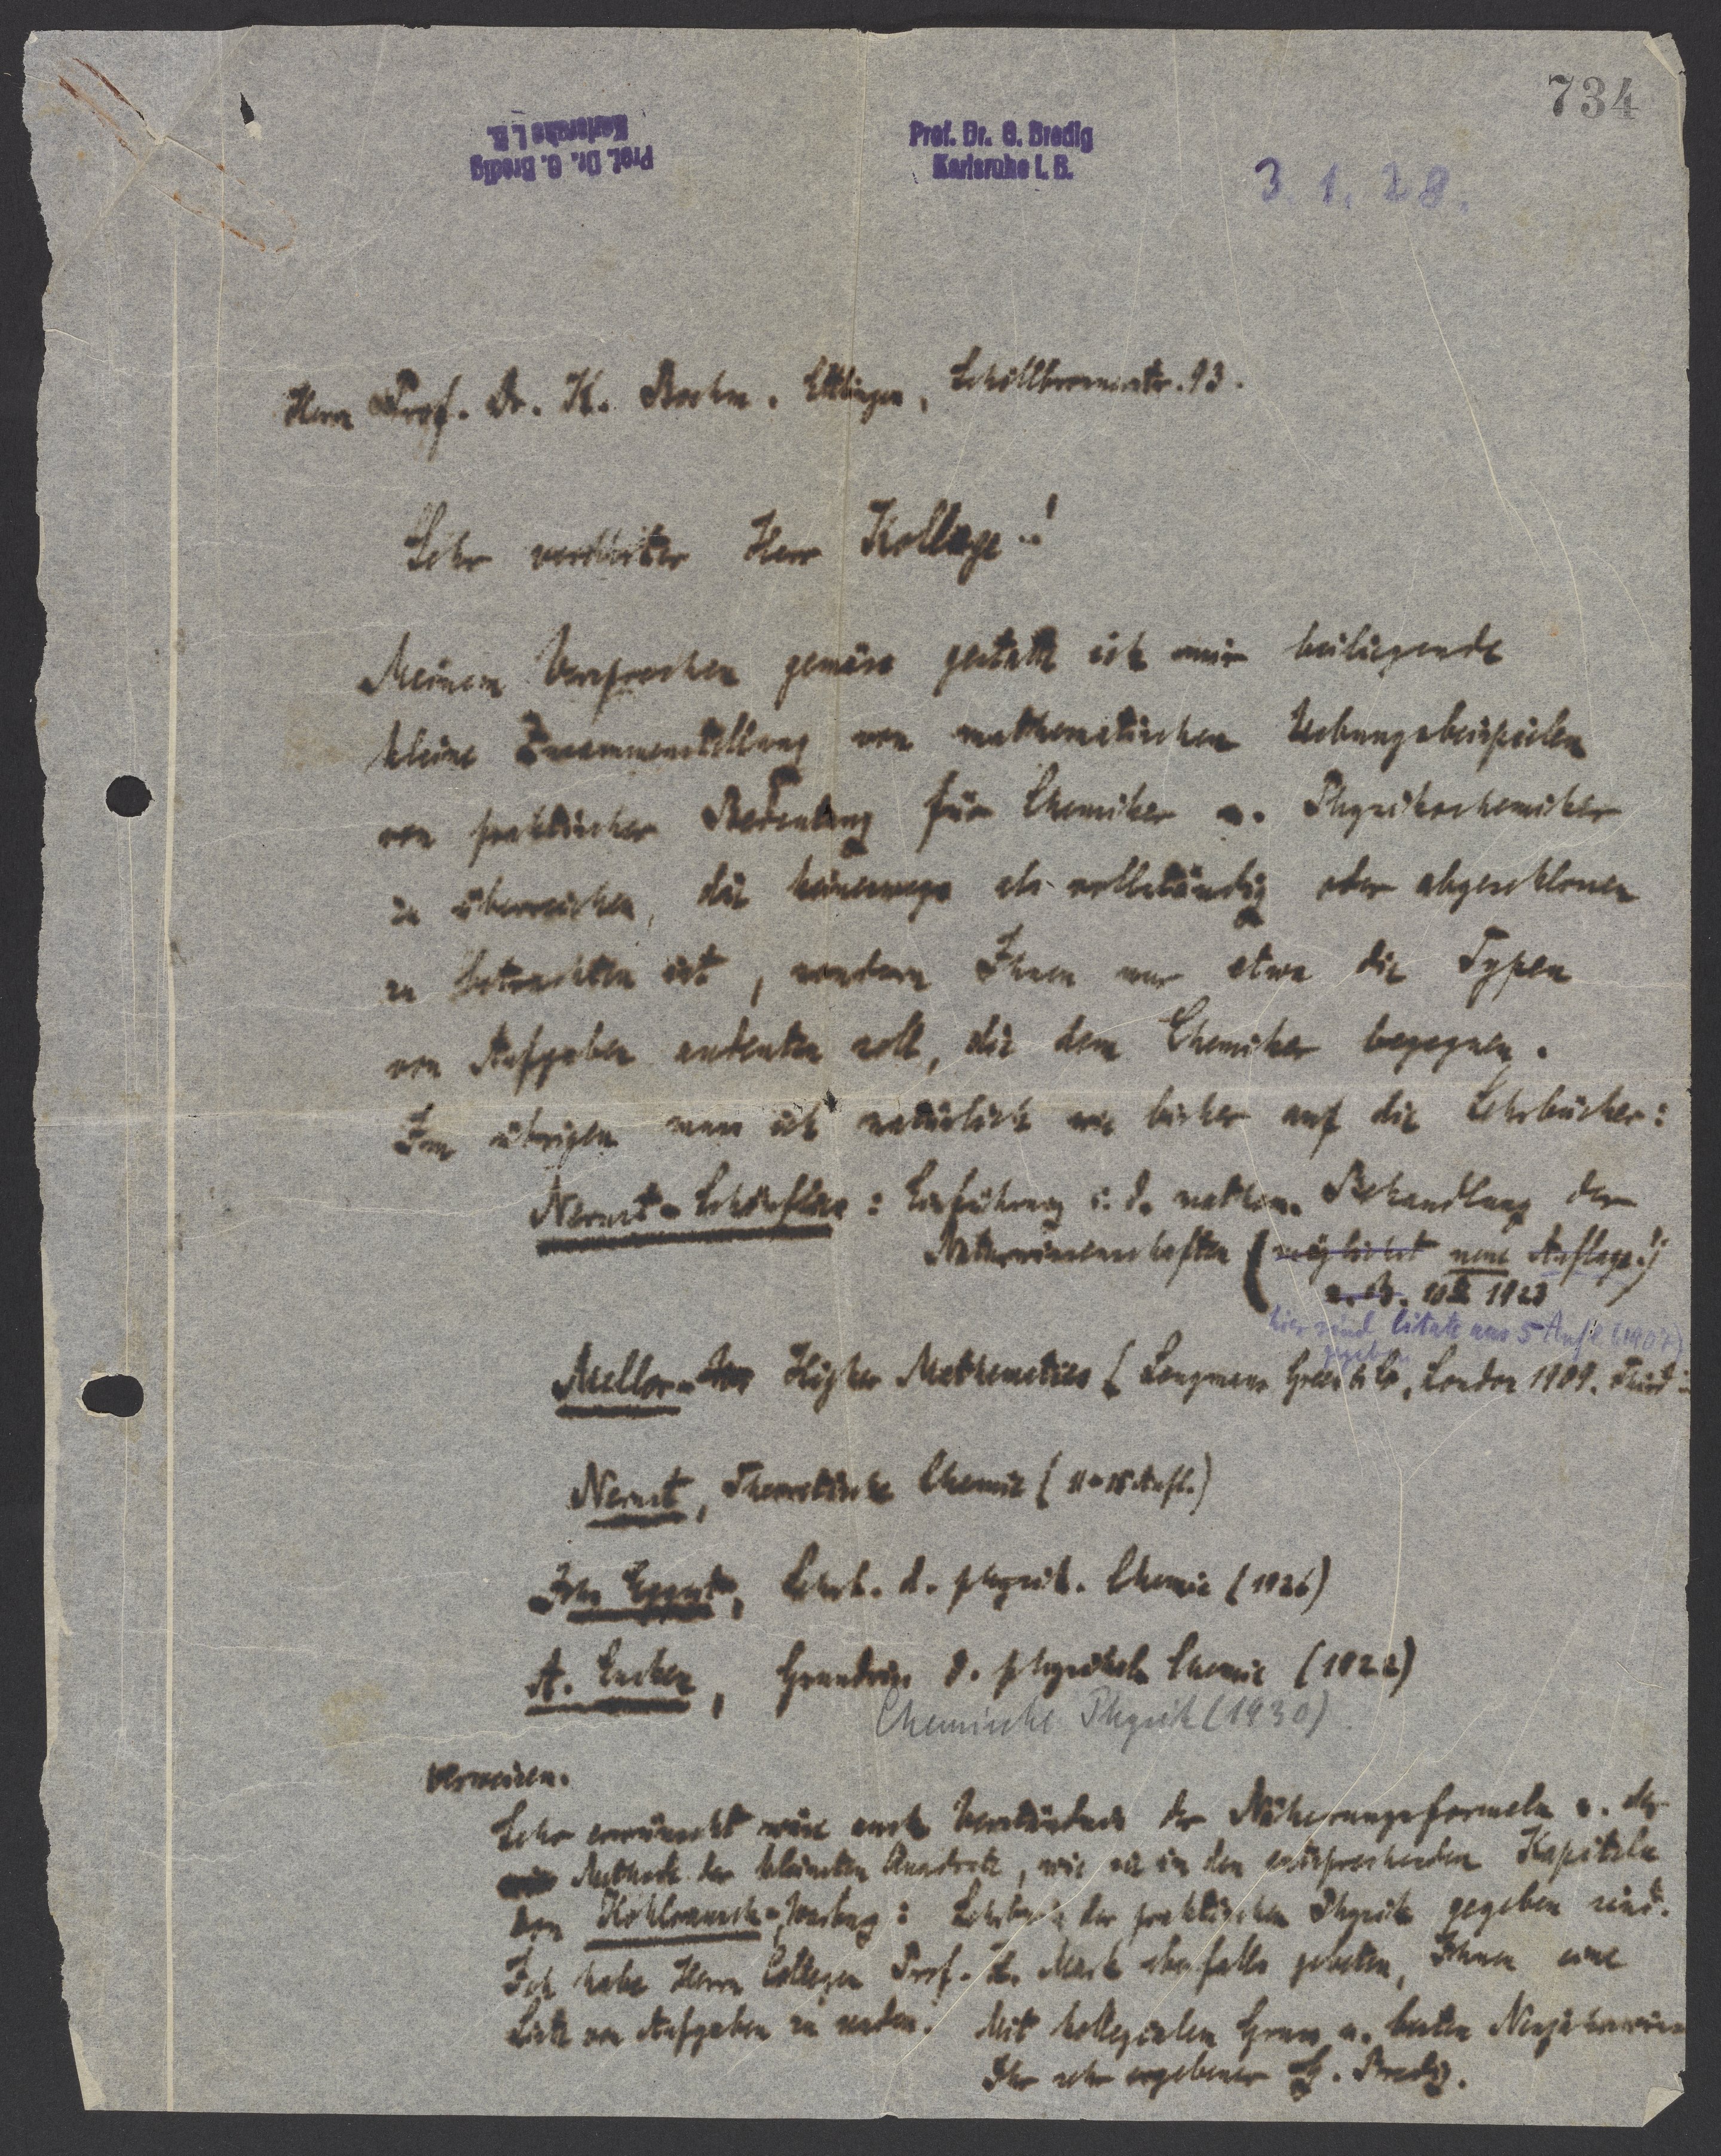 734
Prof. Dr. G. Bredig
Karlsruhe i. B.
Prof. Dr. G. Bredig
Karlsruhe i. B.
3. 1. 28.
Herrn Prof. Dr. K. Boehm. Ettlingen, Schöllbronnerstr. 93.
Sehr verehrter Herr Kollege!
Meinem Versprechen gemäss gestatte ich mir beiliegende
kleine Zusammenstellung von mathematischen Uebungsbeispielen
von praktischer Bedeutung für Chemiker u. Physikochemiker
zu überreichen, die keineswegs als vollständig oder abgeschlossen
zu betrachten ist, sondern Ihnen nur etwa die Typen
von Aufgaben andeuten soll, die dem Chemiker begegnen.
Im übrigen muss ich natürlich wie bisher auf die Lehrbücher:
Nernst-Schönflies: Einführung i. d. mathem. Behandlung der
Naturwissenschaften (möglichst neue Auflage!)
z. B. 10te 1923
hier sind Citate aus 5 Aufl. (1907)
gegeben
Mellor Higher Mathematics (Longmans Green & Co, London 1909. Third
Nernst, Theoretische Chemie (11-15 Aufl.)
Joh. Eggert, Lehrb. d. physik. Chemie (1926)
A. Eucken, Grundriss d. physikal. Chemie (1922)
Chemische Physik (1930)
verweisen.
Sehr erwünscht wäre auch Verständnis der Näherungsformeln u. der
Methode der kleinsten Quadrate, wie sie in den entsprechenden Kapiteln
von Kohlrausch-Warburg: Lehrbuch der praktischen Physik gegeben sind.
Ich habe Herrn Collegen Prof. H. Mark ebenfalls gebeten, Ihnen eine
Liste von Aufgaben zu senden. Mit kollegialem Gruss u. besten
Ihr sehr ergebener G. Bredig.